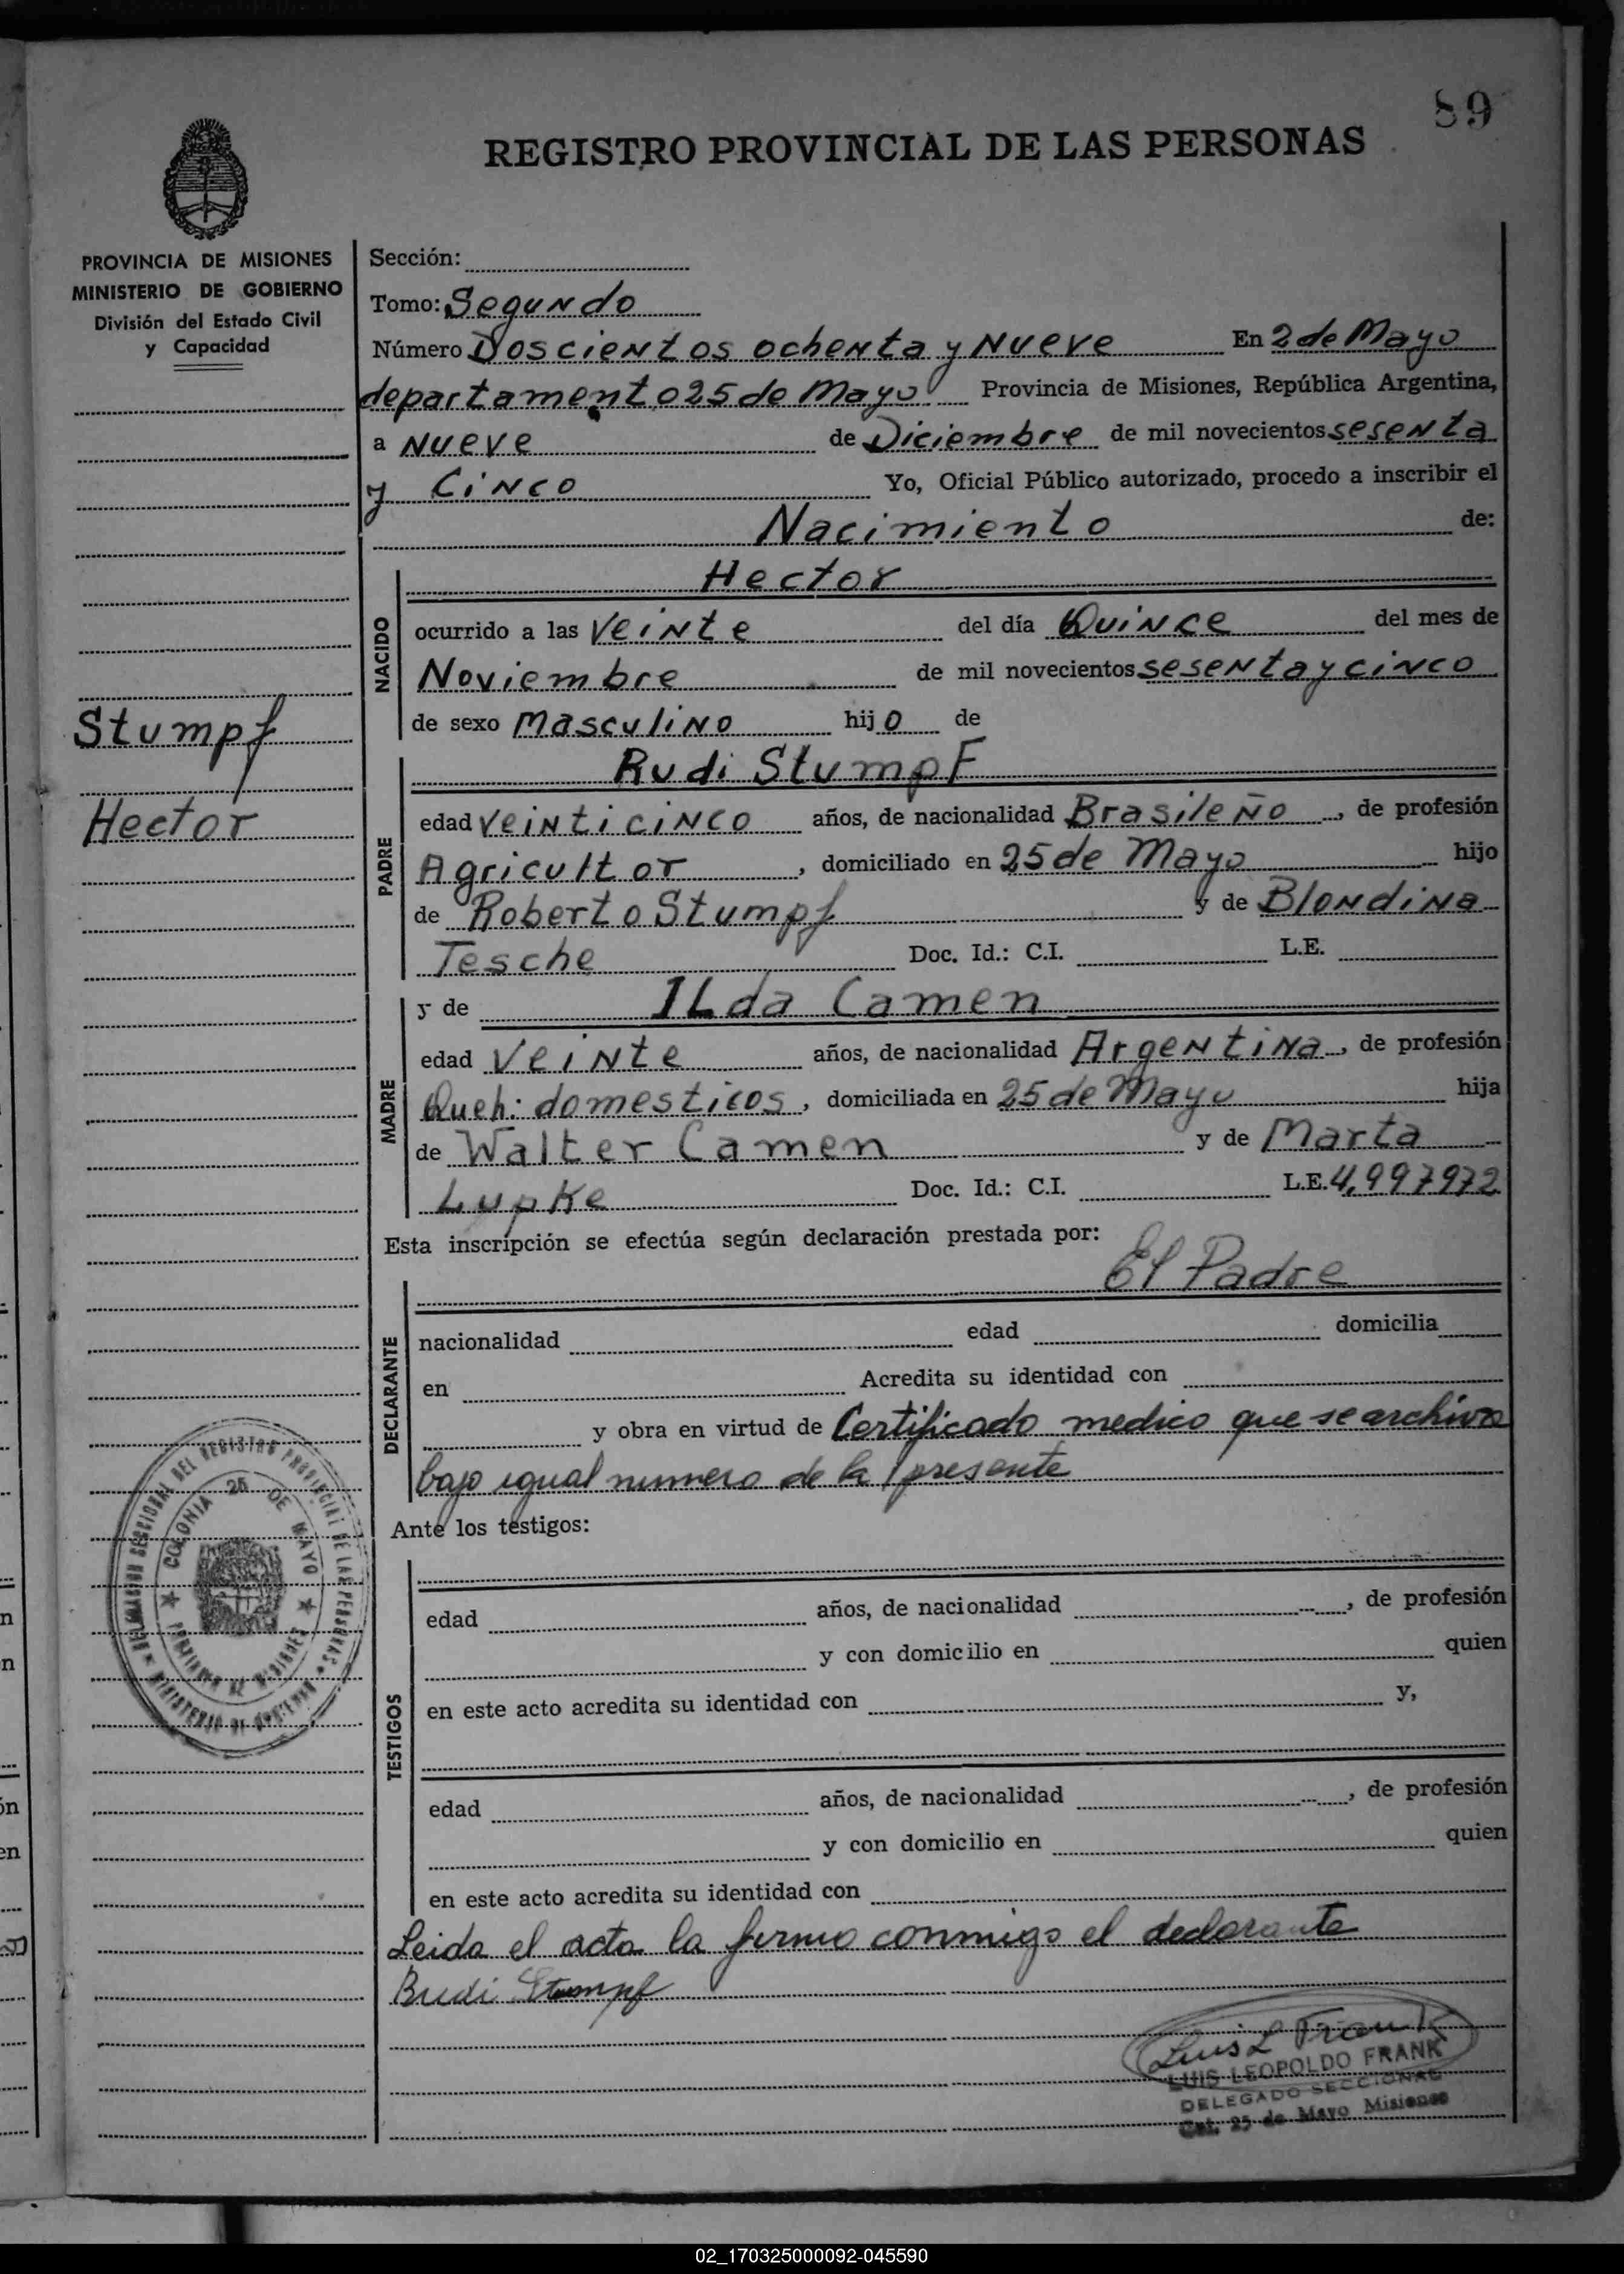 89
REGISTRO PROVINCIAL DE LAS PERSONAS
PROVINCIA DE MISIONES
MINISTERIO DE GOBIERNO
División del Estado Civil
y Capacidad
Stumpf
Hector
Sección:
Tomo: Segundo
Número Doscientos ochenta y Nueve En 2 de Mayo
departamento 25 de Mayo Provincia de Misiones, República Argentina,
a Nueve de Diciembre de mil novecientos sesenta
y Cinco Yo, Oficial Público autorizado, procedo a inscribir el
Nacimiento de:
NACIDO
Hector
ocurrido a las Veinte del día Quince del mes de
Noviembre de mil novecientos sesenta y cinco
de sexo Masculino hijo de
PADRE
Rudi Stumpf
edad Veinticinco años, de nacionalidad Brasileño, de profesión
Agricultor, domiciliado en 25 de Mayo hijo
de Roberto Stumpf y de Blondina
Tesche Doc. Id.: C.I. L.E.
MADRE
y de ILda Camen
edad Veinte años, de nacionalidad Argentina, de profesión
Queh: domesticos, domiciliada en 25 de Mayo hija
de Walter Camen y de Marta
Lupke Doc. Id.: C.I. L.E. 4,997972
Esta inscripción se efectúa según declaración prestada por:
El Padre
DECLARANTE
nacionalidad edad domicilia
en Acredita su identidad con
y obra en virtud de Certificado medico que se archiva
bajo igual numero de la presente
Ante los testigos:
TESTIGOS
edad años, de nacionalidad , de profesión
y con domicilio en quien
en este acto acredita su identidad con y,
edad años, de nacionalidad , de profesión
y con domicilio en quien
en este acto acredita su identidad con
Leida el acta la firma conmigo el declarante
Rudi Stumpf
COLONIA 25 DE MAYO
SECCIONAL DEL REGISTRO PROVINCIAL DE LAS PERSONAS
MINISTERIO DE GOBIERNO
PROVINCIA DE MISIONES
Luis L Frank
LUIS LEOPOLDO FRANK
DELEGADO SECCIONAL
Col. 25 de Mayo Misiones
02_170325000092-045590